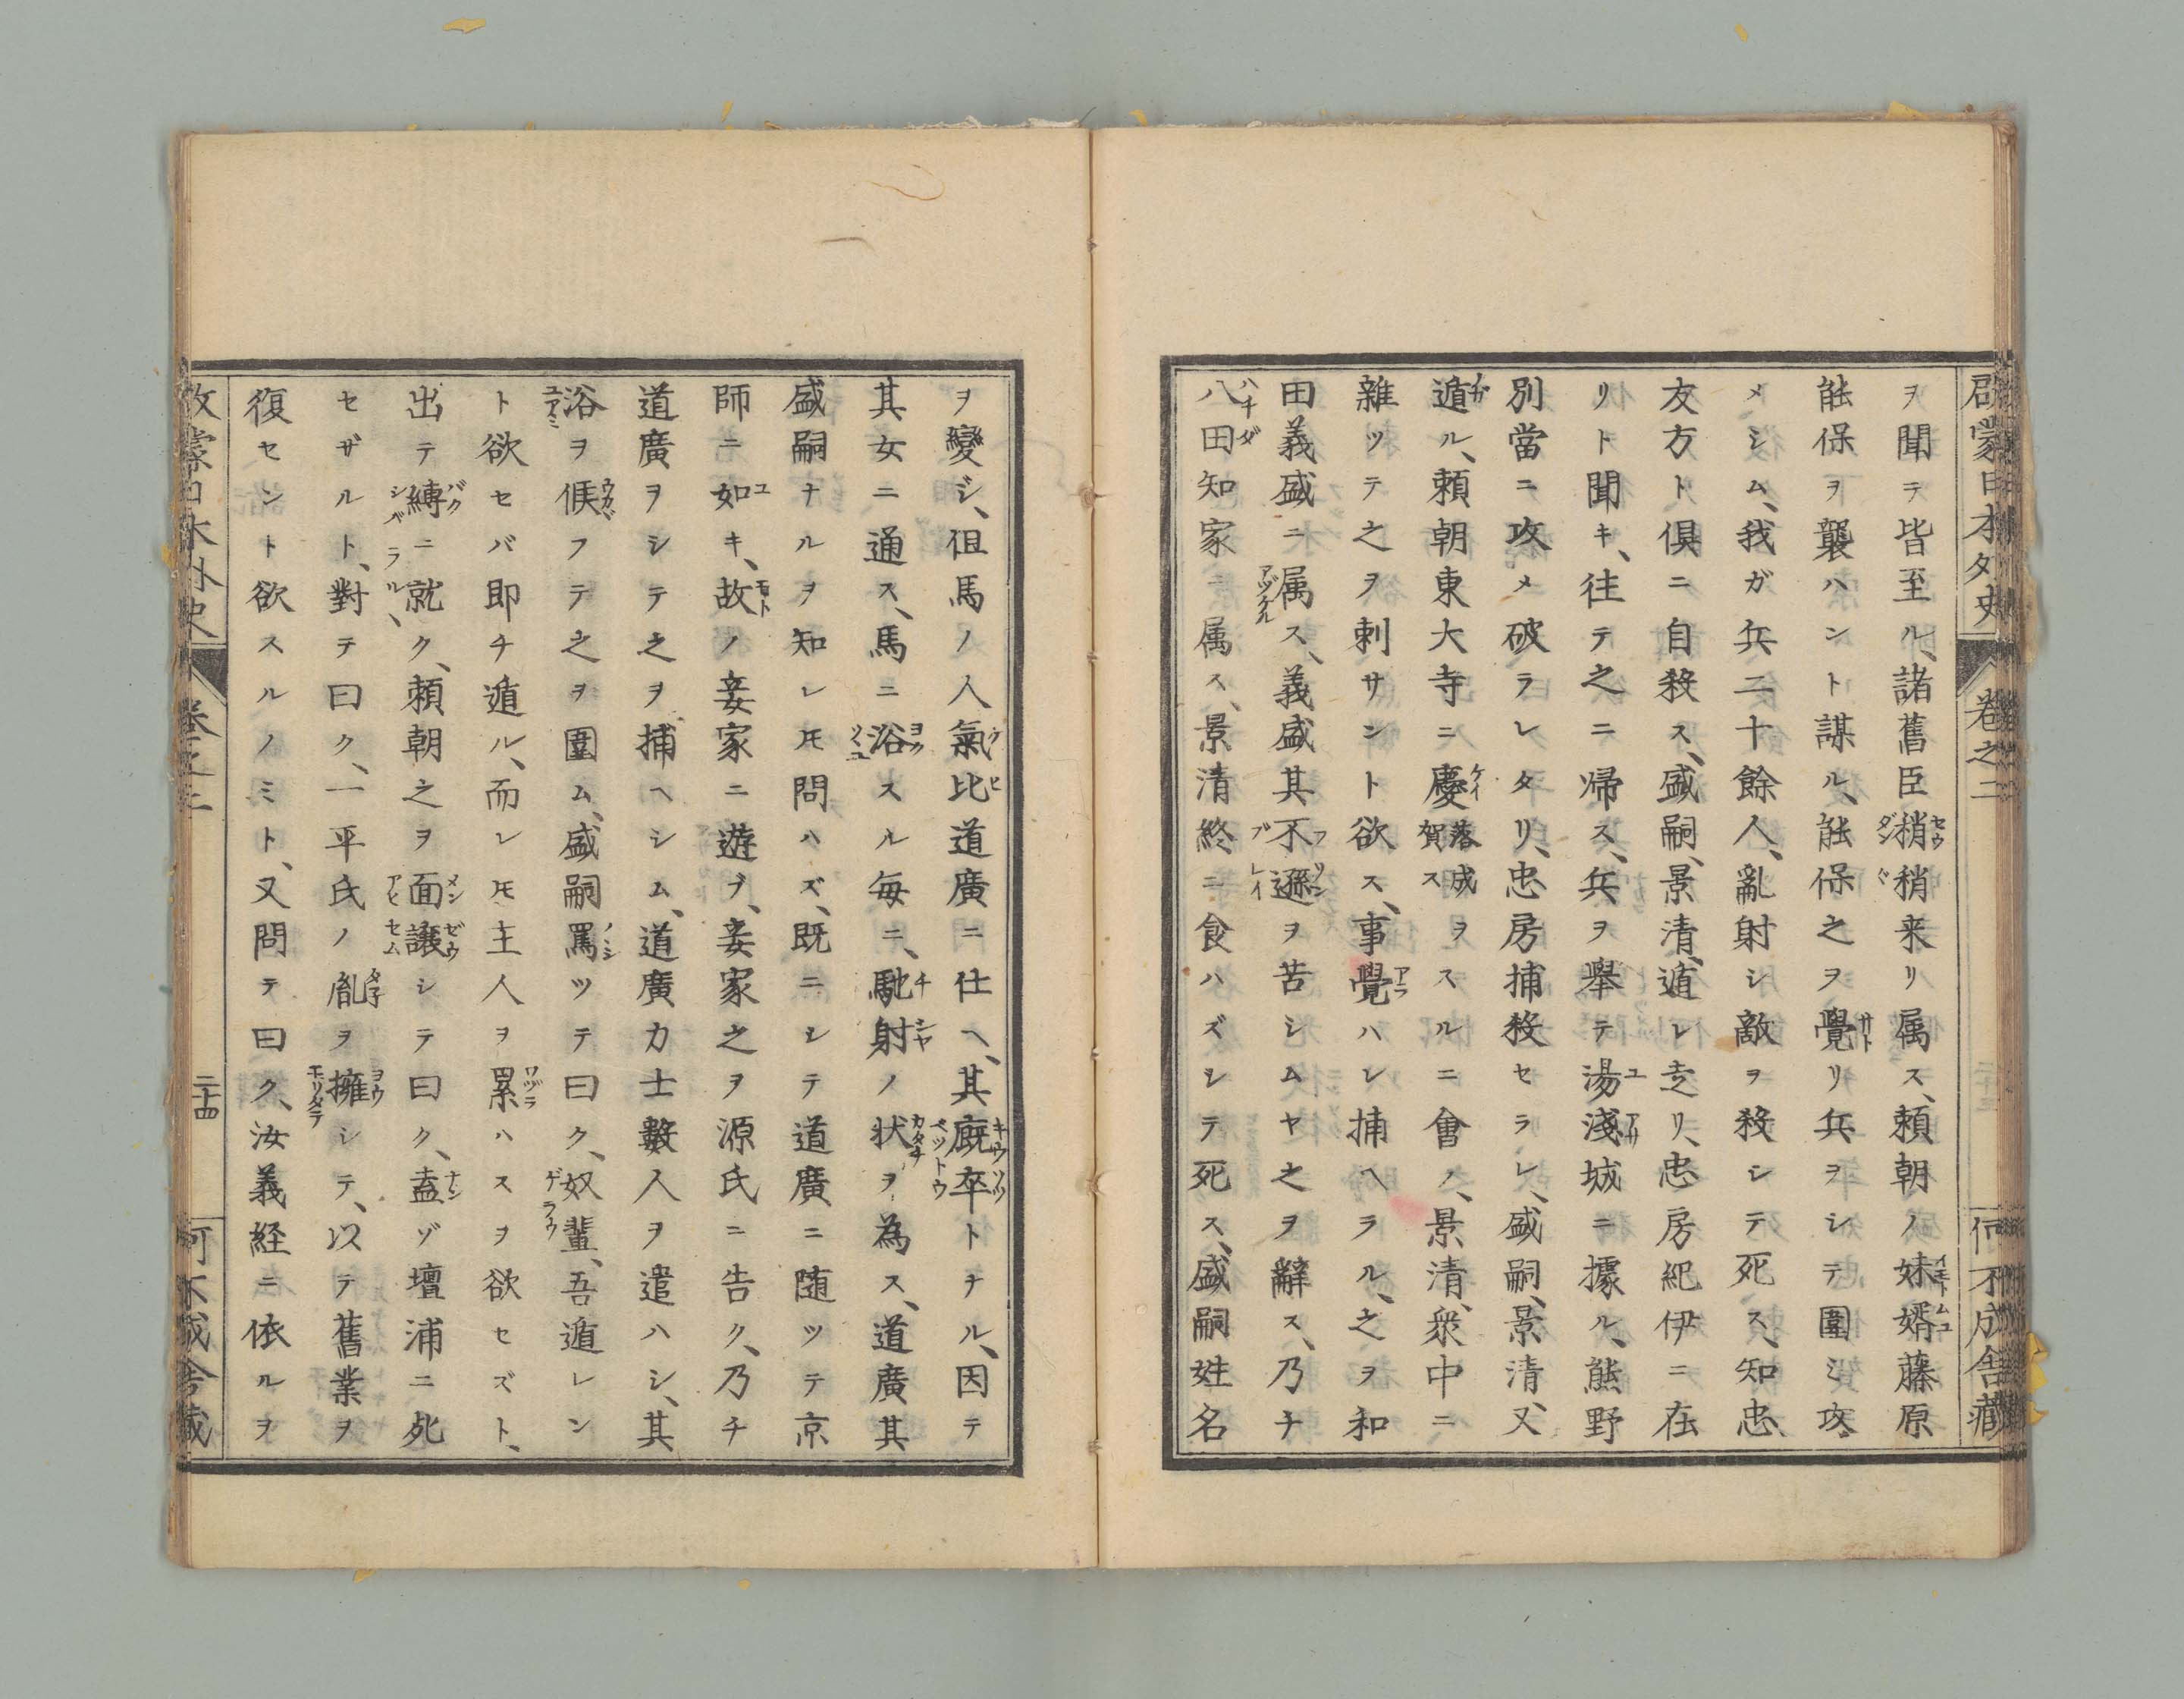 啓蒙日本外史 巻之二 何不成舎蔵
ヲ聞テ皆至ル、諸舊臣稍稍来リ属ス、頼朝ノ妹婿藤原
能保ヲ襲ハント謀ル、能保之ヲ覺リ兵ヲシテ圍ミ攻
メシム、我ガ兵二十餘人、亂射シ敵ヲ殺シテ死ス、知忠、
友方ト倶ニ自殺ス、盛嗣、景清、遁レ走リ、忠房紀伊ニ在
リト聞キ、往テ之ニ帰ス、兵ヲ舉テ湯淺城ニ據ル、熊野
別當ニ攻メ破ラレタリ、忠房捕殺セラレ、盛嗣、景清、又、
遁ル、頼朝東大寺ニ慶賀落成スヲスルニ會ノ、景清、衆中ニ
雜ツテ之ヲ刺サント欲ス、事覺ハレ捕ヘラル、之ヲ和
田義盛ニ属ス、義盛其不遜ヲ苦シムヤ之ヲ辭ス、乃チ
八田知家ニ属ス、景清終ニ食ハズシテ死ス、盛嗣姓名
ヲ變シ、但馬ノ人氣比道廣ニ仕ヘ、其廐卒トナル、因テ
其女ニ通ス、馬ニ浴スル毎ニ、馳射ノ状ヲ為ス、道廣其
盛嗣ナルヲ知レ𪜈問ハズ、既ニシテ道廣ニ随ツテ京
師ニ如キ、故ノ妾家ニ遊ブ、妾家之ヲ源氏ニ告ク、乃チ
道廣ヲシテ之ヲ捕ヘシム、道廣力士數人ヲ遣ハシ、其
浴ヲ候フテ之ヲ圍ム、盛嗣罵ツテ曰ク、奴輩、吾遁レン
ト欲セバ即チ遁ル、而レ𪜈主人ヲ累ハスヲ欲セズト、
出テ縛ニ就ク、頼朝之ヲ面讓シテ曰ク、盍ゾ壇浦ニ死
セザルト、對テ曰ク、一平氏ノ胤ヲ擁シテ、以テ舊業ヲ
復セント欲スルノミト、又問テ曰ク、汝義経ニ依ルヲ
啓蒙日本外史 巻之二 二十四 何不成舎蔵